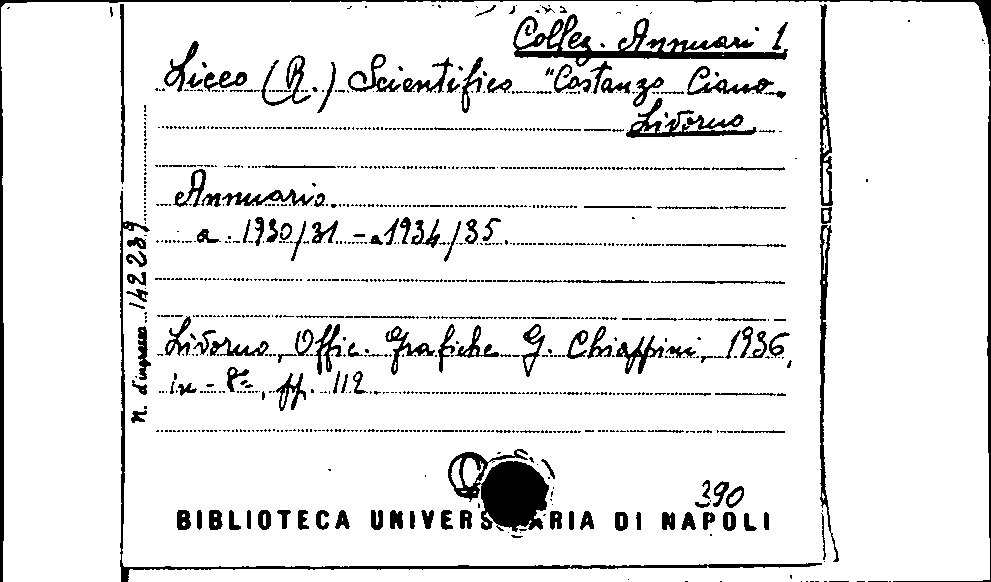 Collez. Annuari 1
Liceo (R.) Scientifico "Costanzo Ciano„
Livorno.
Annuario.
a. 1930/31 - a 1934/35.
Livorno, Offic. Grafiche G. Chiappini, 1936,
in-8°, pp. 112.
N. d'ingresso 142239
390
BIBLIOTECA UNIVERS ARIA DI NAPOLI